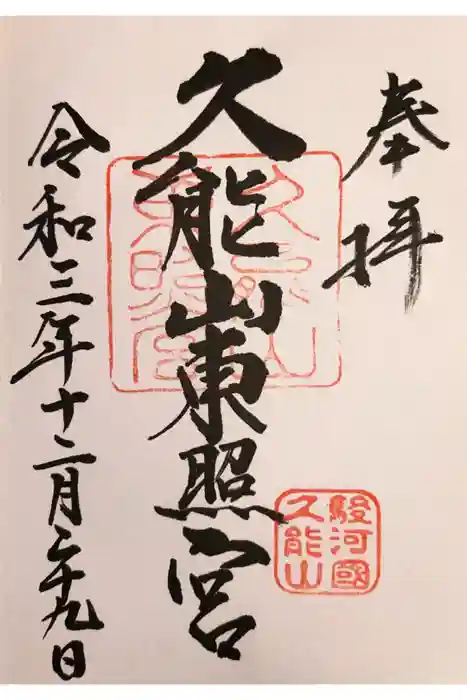 奉拝
久能山東照宮
令和三年十二月二十九日
久能山東照宮
駿河國
久能山